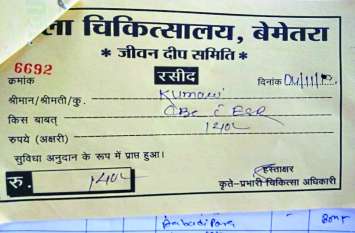 ला चिकित्सालय, बेमेतरा
* जीवन दीप समिति *
6692
क्रमांक रसीद दिनांक 04/11/
श्रीमान/श्रीमती/कु. Kumari
किस बाबत् CBC ESR
रुपये (अक्षरी) 140/-
सुविधा अनुदान के रूप में प्राप्त हुआ।
हस्ताक्षर
रु. 140/- कृते-प्रभारी चिकित्सा अधिकारी